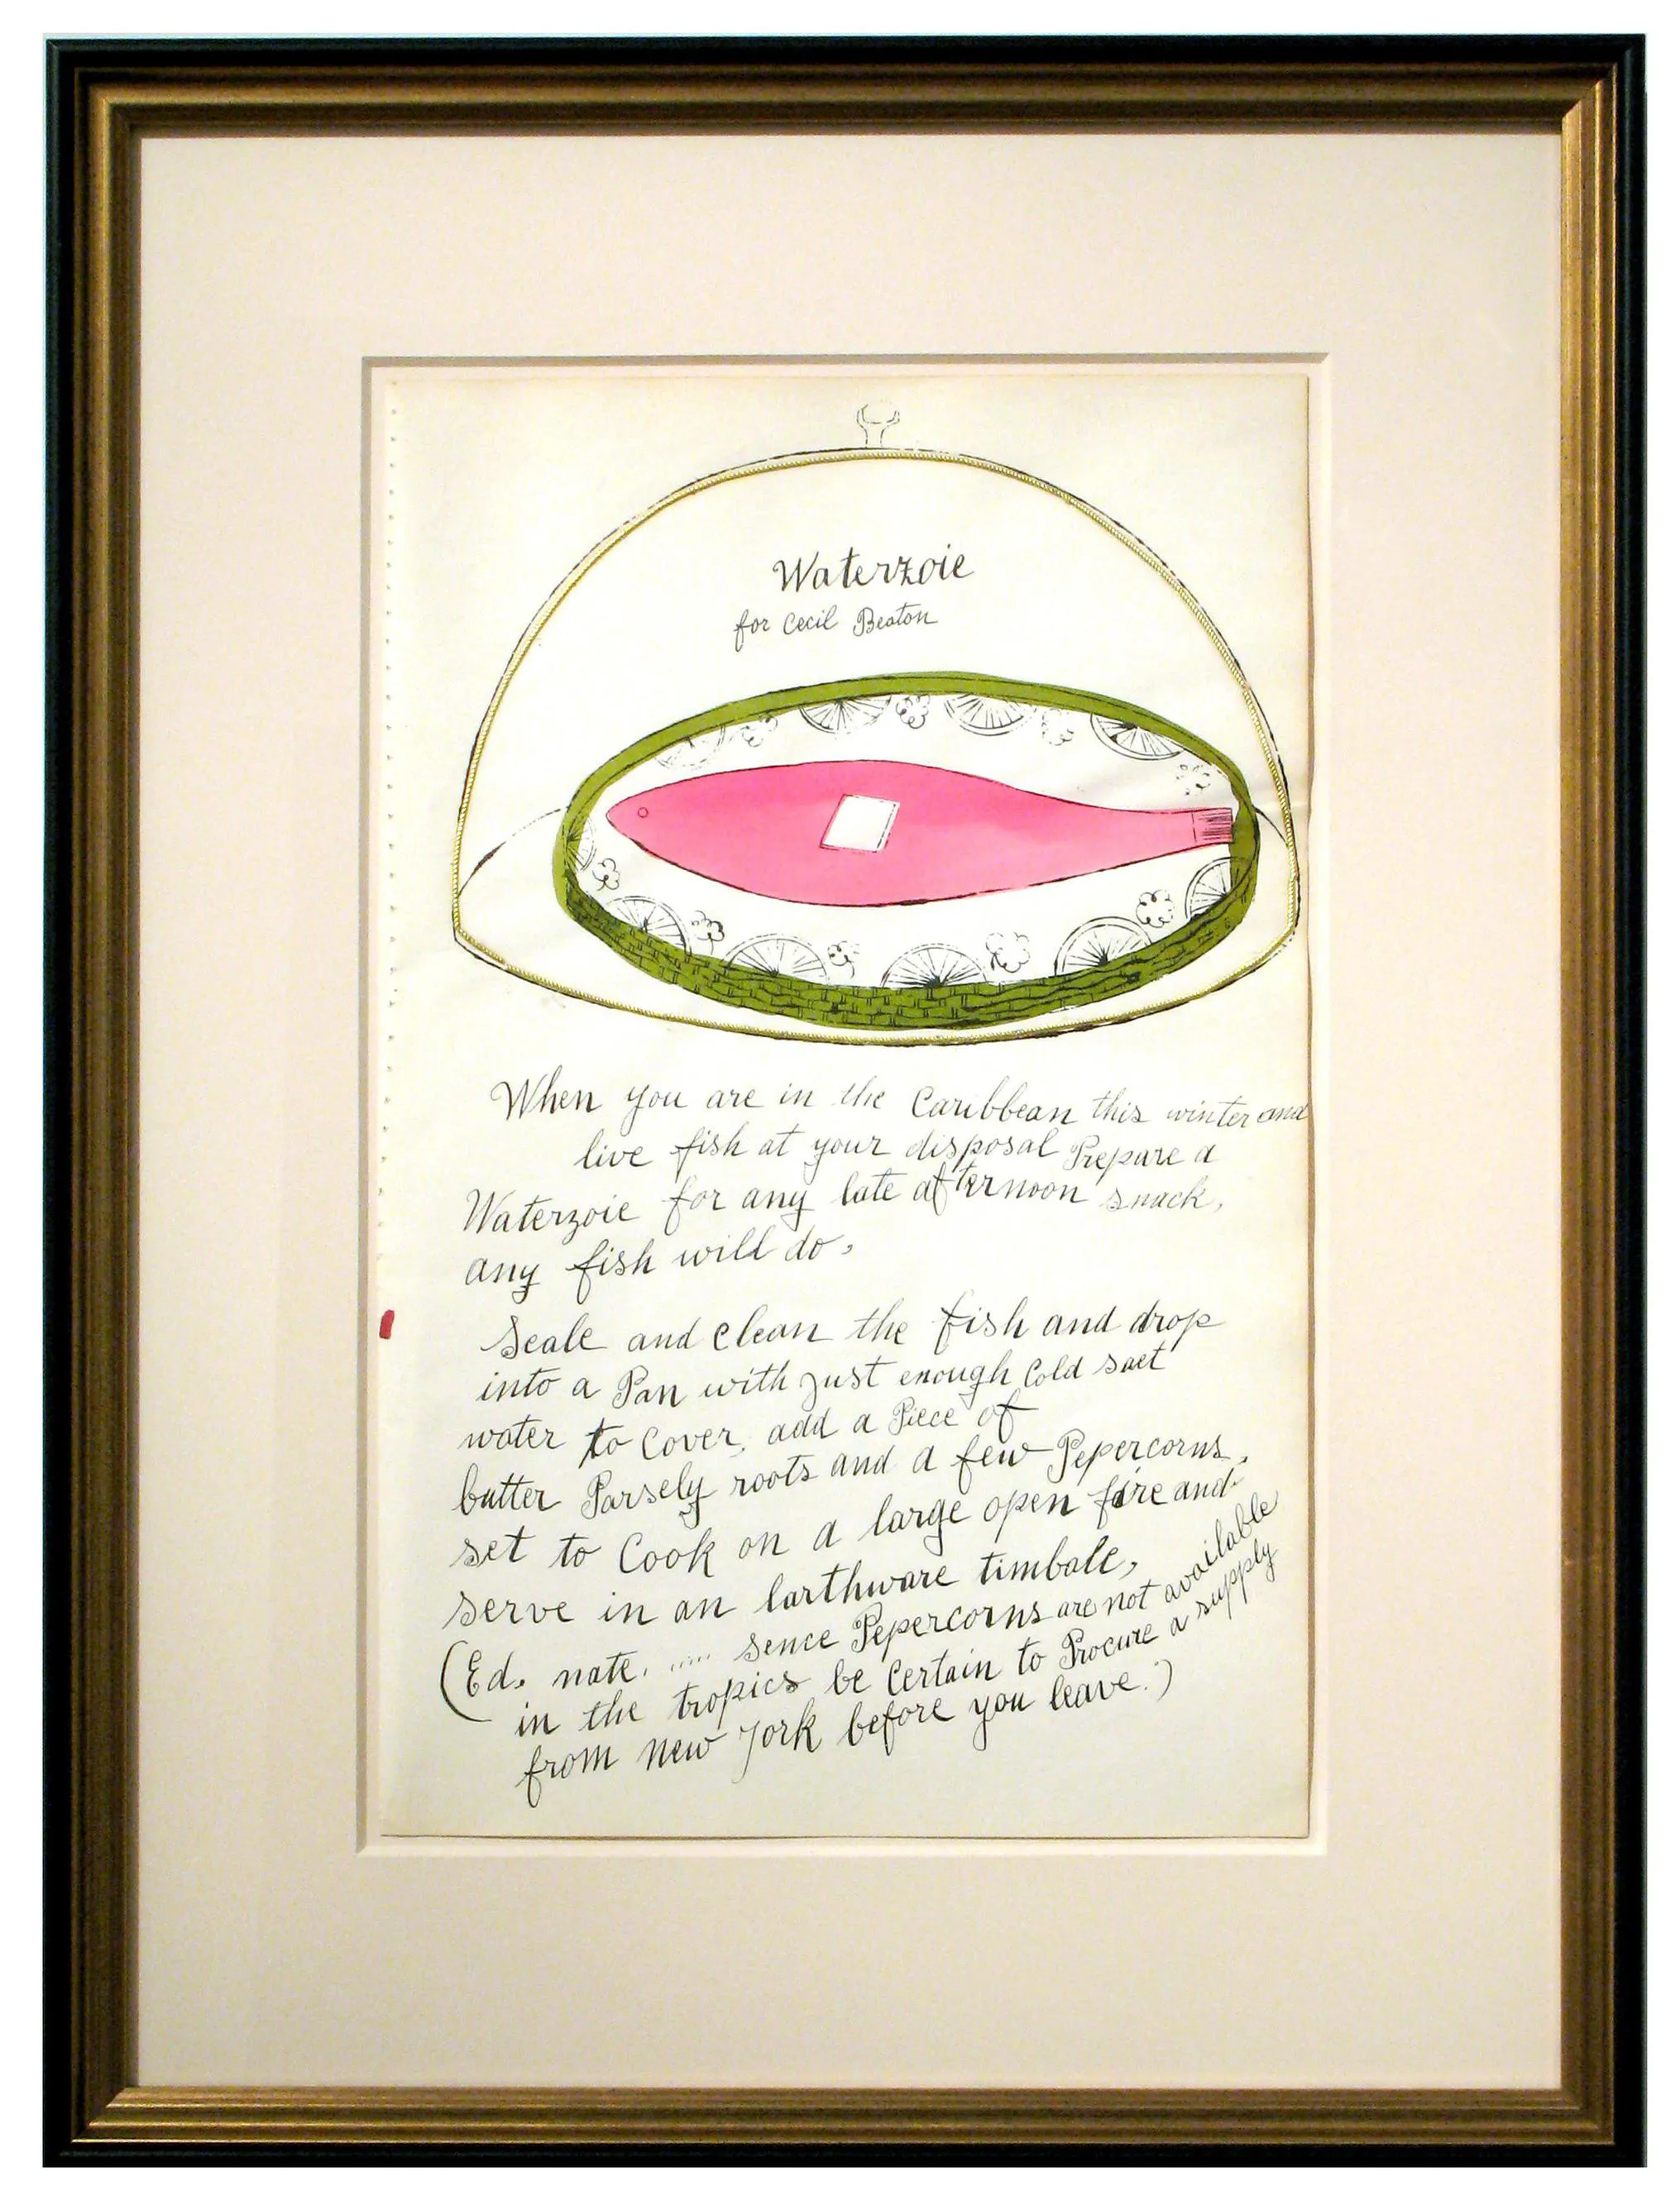 Waterzoie
for Cecil Beaton
When you are in the Caribbean this winter and
live fish at your disposal Prepare a
Waterzoie for any late afternoon snack,
any fish will do,
Seale and clean the fish and drop
into a Pan with just enough Cold salt
water to Cover, add a Piece of
butter Parsely roots and a few Pepercorns,
set to Cook on a large open fire and
serve in an earthware timbale,
(Ed. note. ..... sence Pepercorns are not available
in the tropics be Certain to Procure a supply
from new York before you leave.)